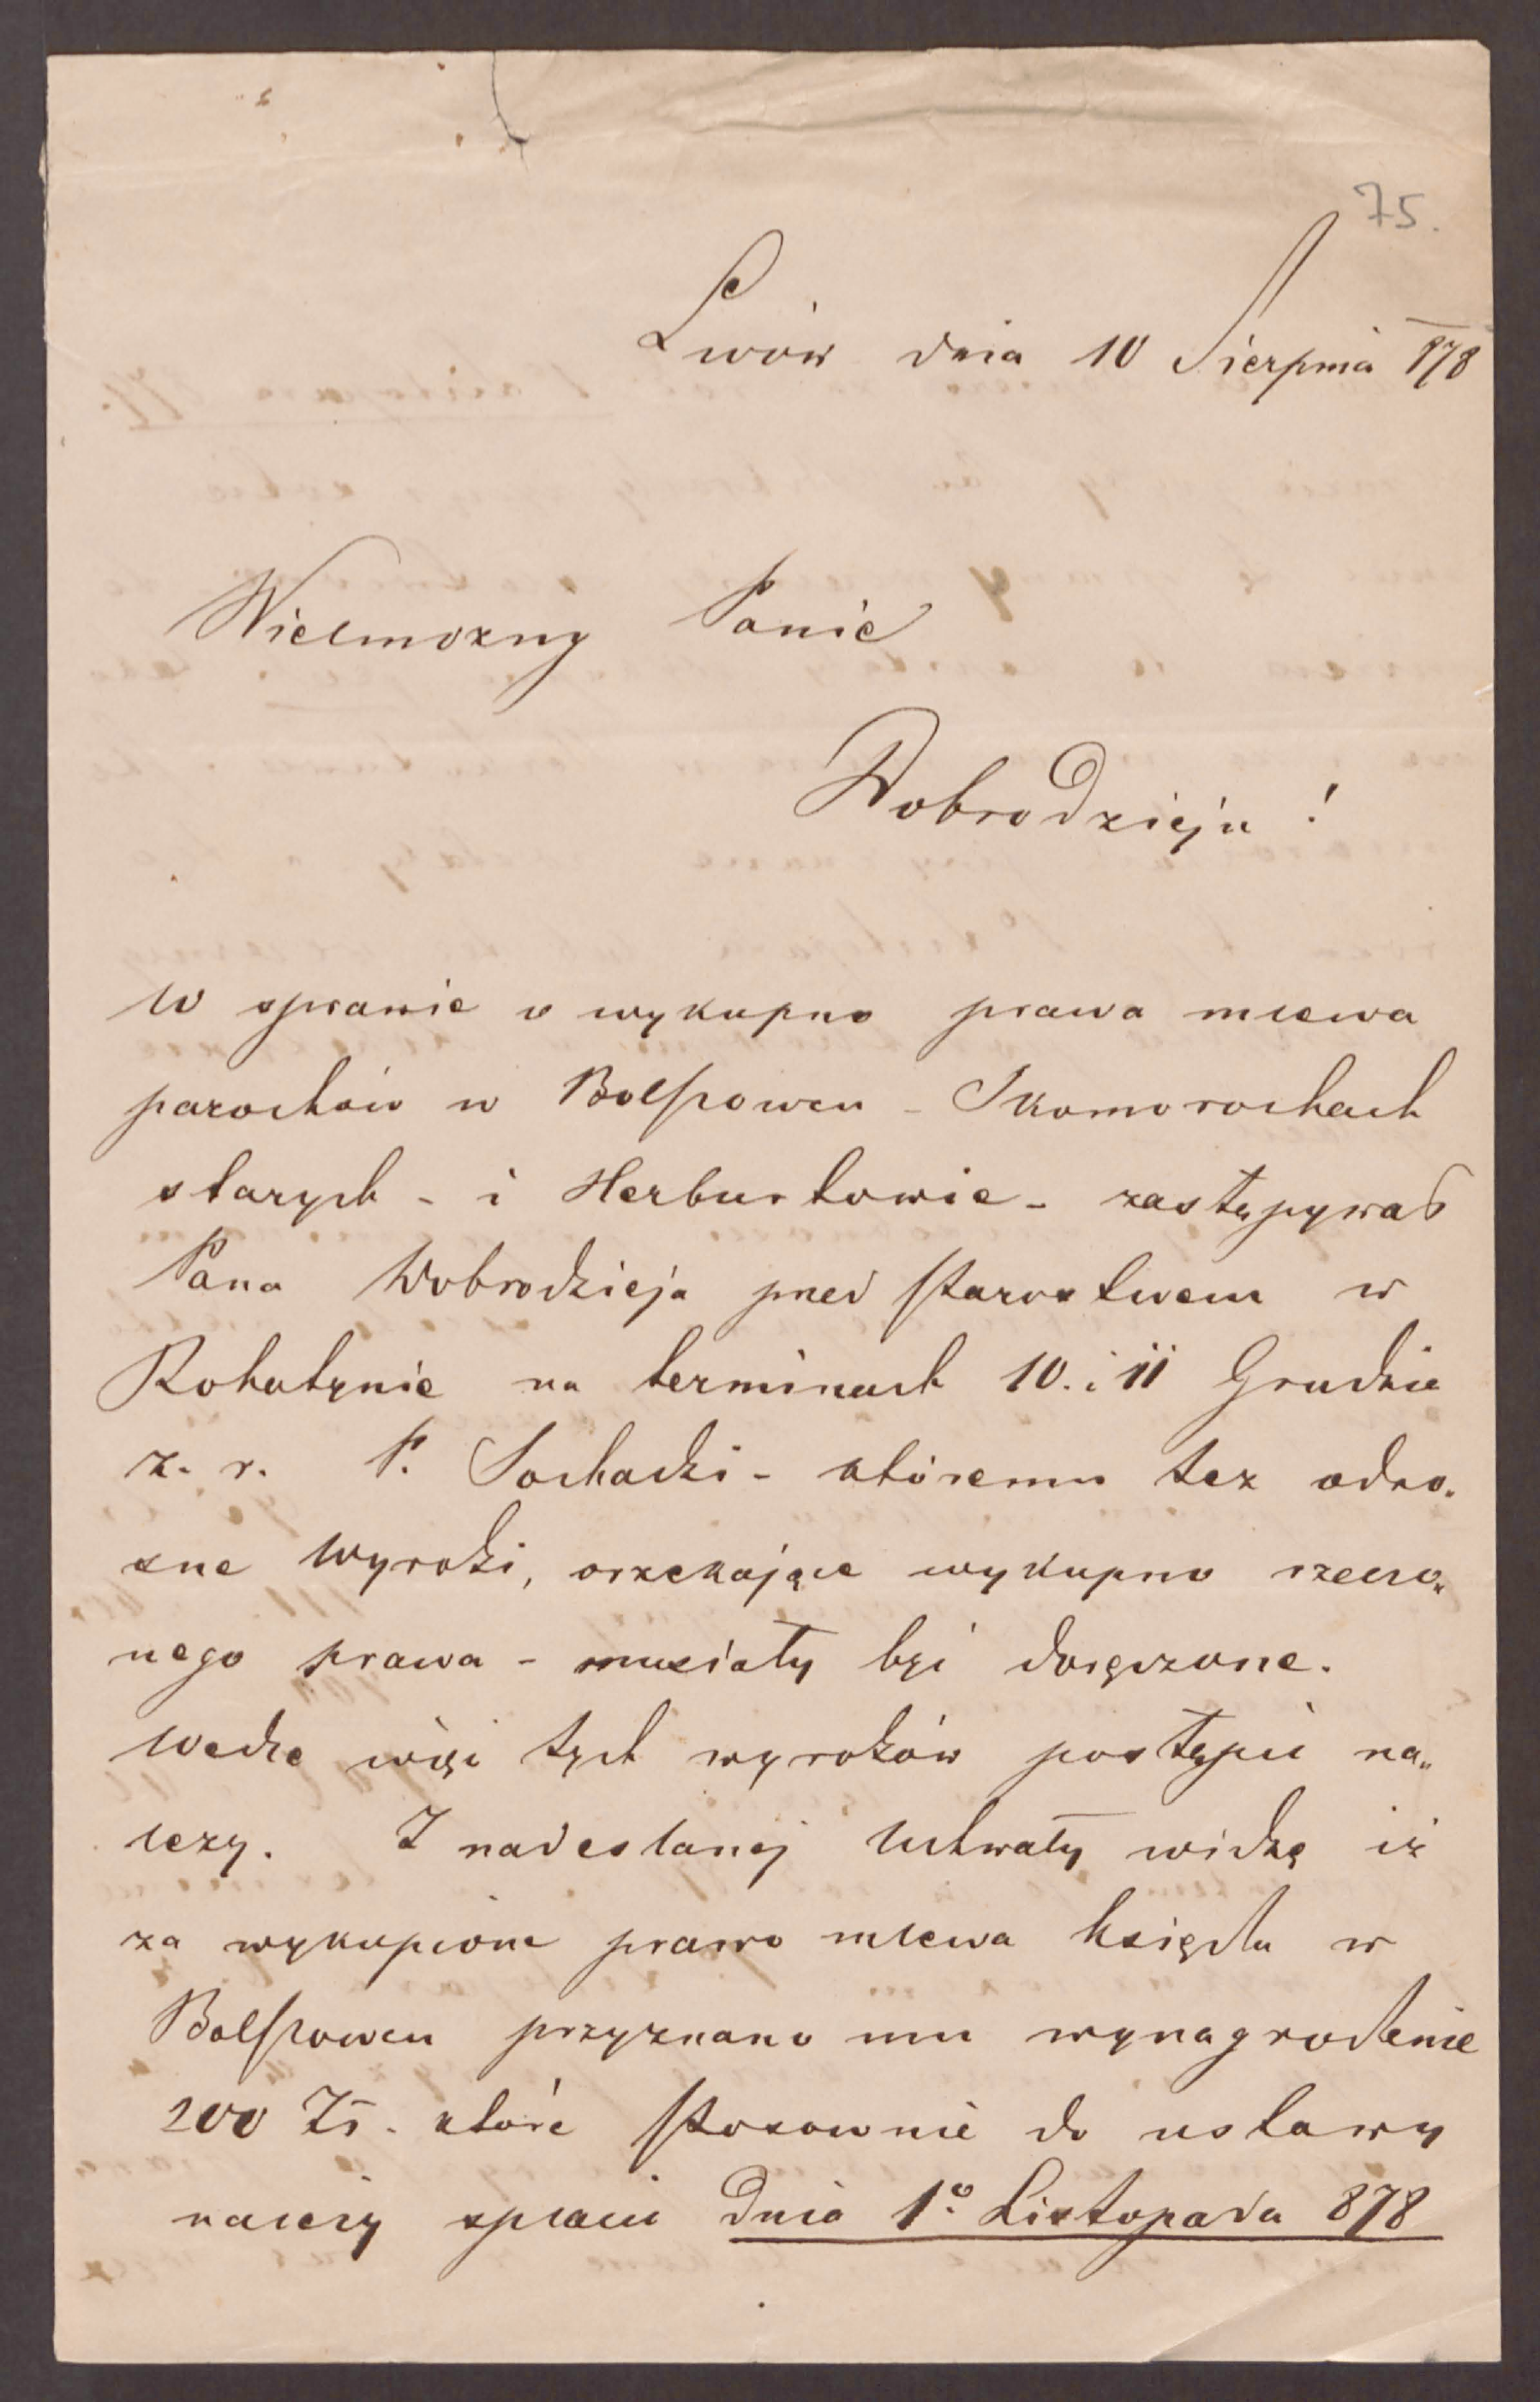 75.
Lwów dnia 10 Sierpnia 878
Wielmożny Panie
Dobrodzieju!
W sprawie o wykupno prawa mlewa
parochów w Bolszowcu - Skomorochach
starych - i Herburtowie - zastępywał
Pana Dobrodzieja przed Starostwem w
Rohatynie na terminach 10. i 11 Grudnia
z. r. P. Sochacki - któremu też odno„
sne wyroki, orzekające wykupno rzeczo„
nego prawa - musiały być doręczone.
Wedle więc tych wyroków postąpić na„
leży. Z nadesłanej Uchwały widzę iż
za wykupione prawo mlewa księdza w
Bolszowcu przyznano mu wynagrodzenie
200 Zł. które stosownie do ustawy
należy spłacić Dnia 1º Listopada 878